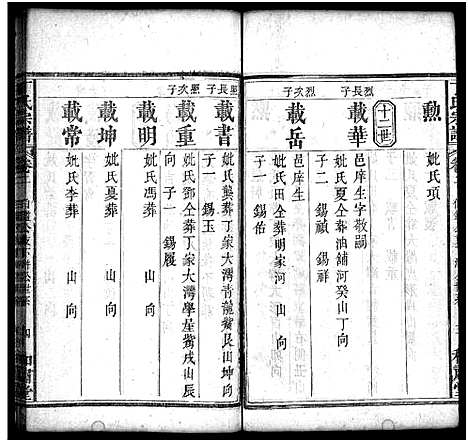 勲
妣氏項
十一世
烈長子
載華
邑庠生字敬嗣
妣氏夏仝葬油鋪河癸山丁向
子二 錫禎 錫祥
烈次子
載岳
邑庠生
妣氏田仝葬明家河 山 向
子一 錫佑
熙長子
載書
妣氏龔葬丁家大灣青龍觜艮山坤向
子一 錫玉
熙次子
載重
妣氏鄧仝葬丁家大灣學屋觜戌山辰
向 子一 錫履
載明
妣氏馮葬 山 向
載坤
妣氏夏葬 山 向
載常
妣氏李葬 山 向
氏宗譜